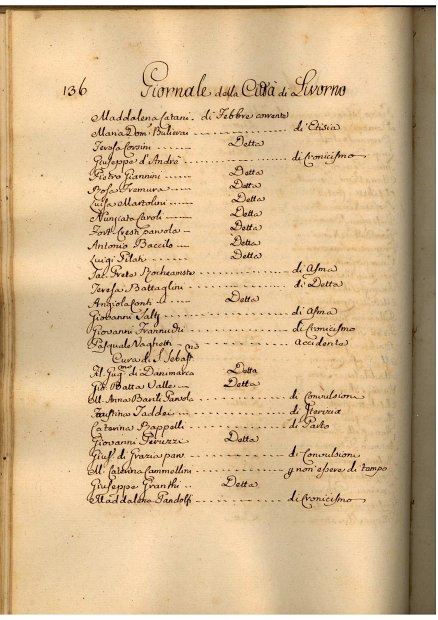 136 Giornale della Città di Livorno
Maddalena Catani di Febbre corrente
Maria Dom. Bulierai di Etisia
Teresa Corsini Detta
Giuseppe d'Andrè di Cronicismo
Pietro Giannini Detta
Rosa Tremura Detta
Luisa Martolini Detta
Nunziata Caroli Detta
Fort. Detta
Antonio Baccilo Detta
Luigi Pilah Detta
Jac. Prete di Asma
Teresa Battaglini di Detta
Angiola Conti Detta
Giovanni Tally di Asma
Giovanni di Cronicismo
Pasquale Vaghetti Accidente
Cura di S. Sebast.
Al. di Danimarca Detta
Gio. Batta Valle Detta
M. Anna di Convulsioni
Faustina Taddei di Iterizia
Caterina Rappelli di Parto
Giovanni Peruzzi Detta
Gius. di Grazia di Convulsioni
M. Caterina Cammellini non essere di tempo
Giuseppe Granthi Detta
Maddalena Pandolfi di Cronicismo